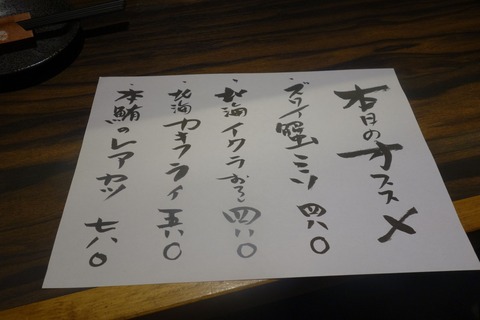 本日のオススメ
・ズワイ蟹ミソ 四八〇
・北海イクラおろし 四八〇
・北海カキフライ 五八〇
・本鮪のレアカツ 七八〇